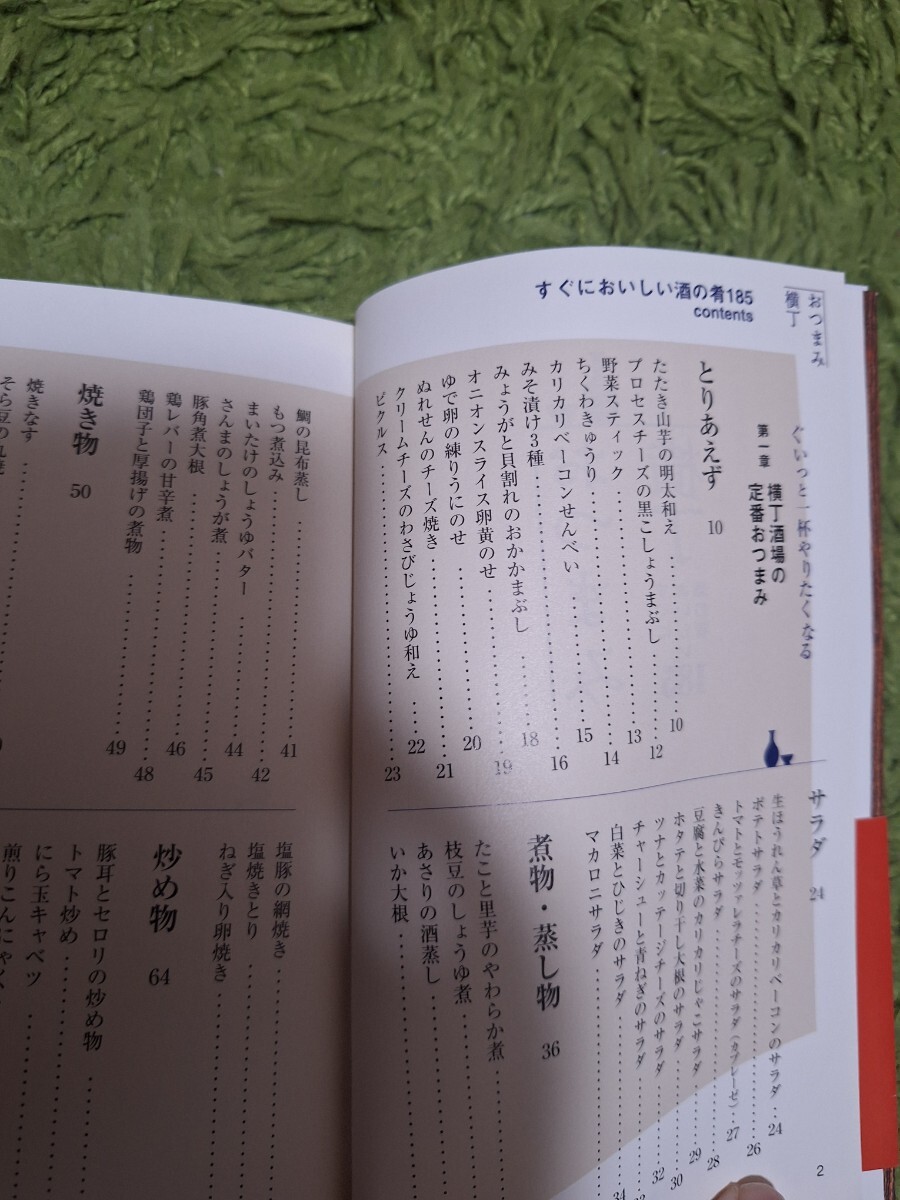 すぐにおいしい酒の肴185
contents
おつまみ
横丁
ぐいっと一杯やりたくなる
第一章 横丁酒場の
定番おつまみ
とりあえず 10
たたき山芋の明太和え 10
プロセスチーズの黒こしょうまぶし 12
野菜スティック 13
ちくわきゅうり 14
カリカリベーコンせんべい 15
みそ漬け3種 16
みょうがと貝割れのおかかまぶし 18
オニオンスライス卵黄のせ 19
ゆで卵の練りうにのせ 20
ぬれせんのチーズ焼き 21
クリームチーズのわさびじょうゆ和え 22
ピクルス 23
サラダ 24
生ほうれん草とカリカリベーコンのサラダ 24
ポテトサラダ 26
トマトとモッツァレラチーズのサラダ(カプレーゼ) 27
きんぴらサラダ 28
豆腐と水菜のカリカリじゃこサラダ 29
ホタテと切り干し大根のサラダ 30
ツナとカッテージチーズのサラダ 32
チャーシューと青ねぎのサラダ
白菜とひじきのサラダ
マカロニサラダ
煮物・蒸し物 36
たこと里芋のやわらか煮
枝豆のしょうゆ煮
あさりの酒蒸し
いか大根
2
鯛の昆布蒸し 41
もつ煮込み 42
まいたけのしょうゆバター 44
さんまのしょうが煮 45
豚角煮大根 46
鶏レバーの甘辛煮 48
鶏団子と厚揚げの煮物 49
焼き物 50
焼きなす
そら豆の
塩豚の網焼き
塩焼きとり
ねぎ入り卵焼き
炒め物 64
豚耳とセロリの炒め物
トマト炒め
にら玉キャベツ
煎りこんにゃく